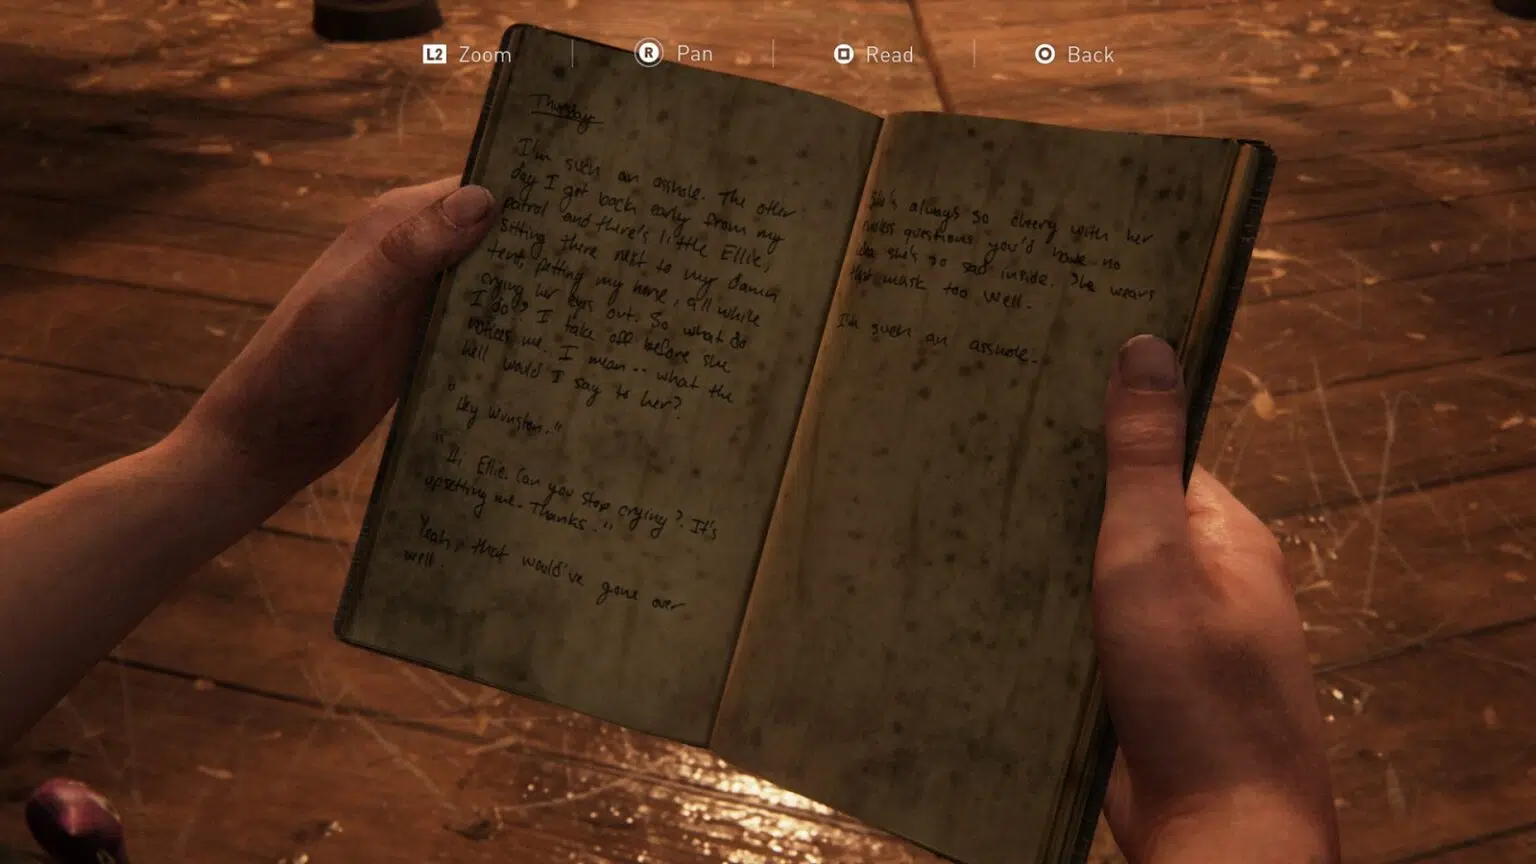 L2 Zoom
R Pan
Read
Back
Thursday
I'm such an asshole. The other
day I get back early from my
patrol and there's little Ellie,
sitting there next to my damn
tent, petting my horse, all while
crying her eyes out. So what do
I do? I take off before she
notices me. I mean -- what the
hell would I say to her?
"
Hey Winston."
"
Hi Ellie. Can you stop crying? It's
upsetting me. Thanks."
Yeah, that would've gone over
well.
She's always so cheery with her
questions you'd have no
idea she's so sad inside. She wears
that mask too well.
I'm such an asshole.